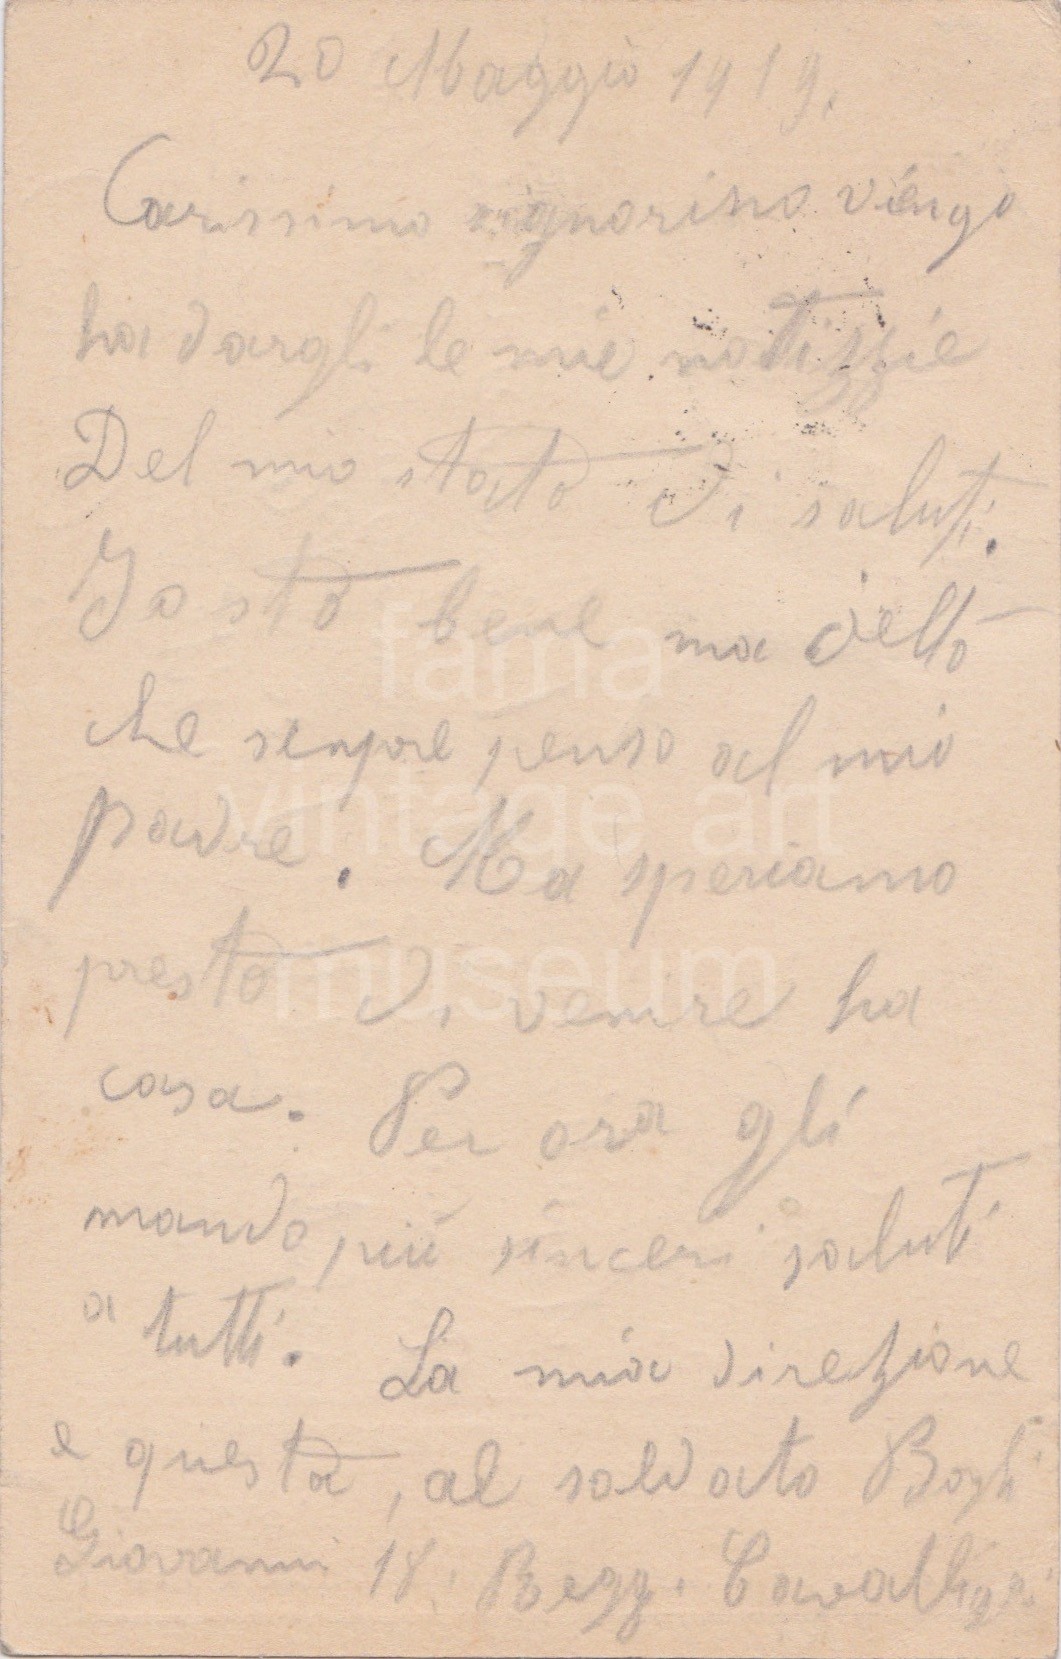 20 Maggio 1919.
Carissimo signorino viengo
ha dargli le mie notizzie
Del mio stato di saluti.
Io sto bene ma dello
che senpre penso al mio
padre. Ma speriamo
presto di venire ha
casa. Per ora gli
mando più sinceri saluti
a tutti. La mia direzione
e questa, al soldato
Giovanni 18. Regg.
fama
vintage art
museum